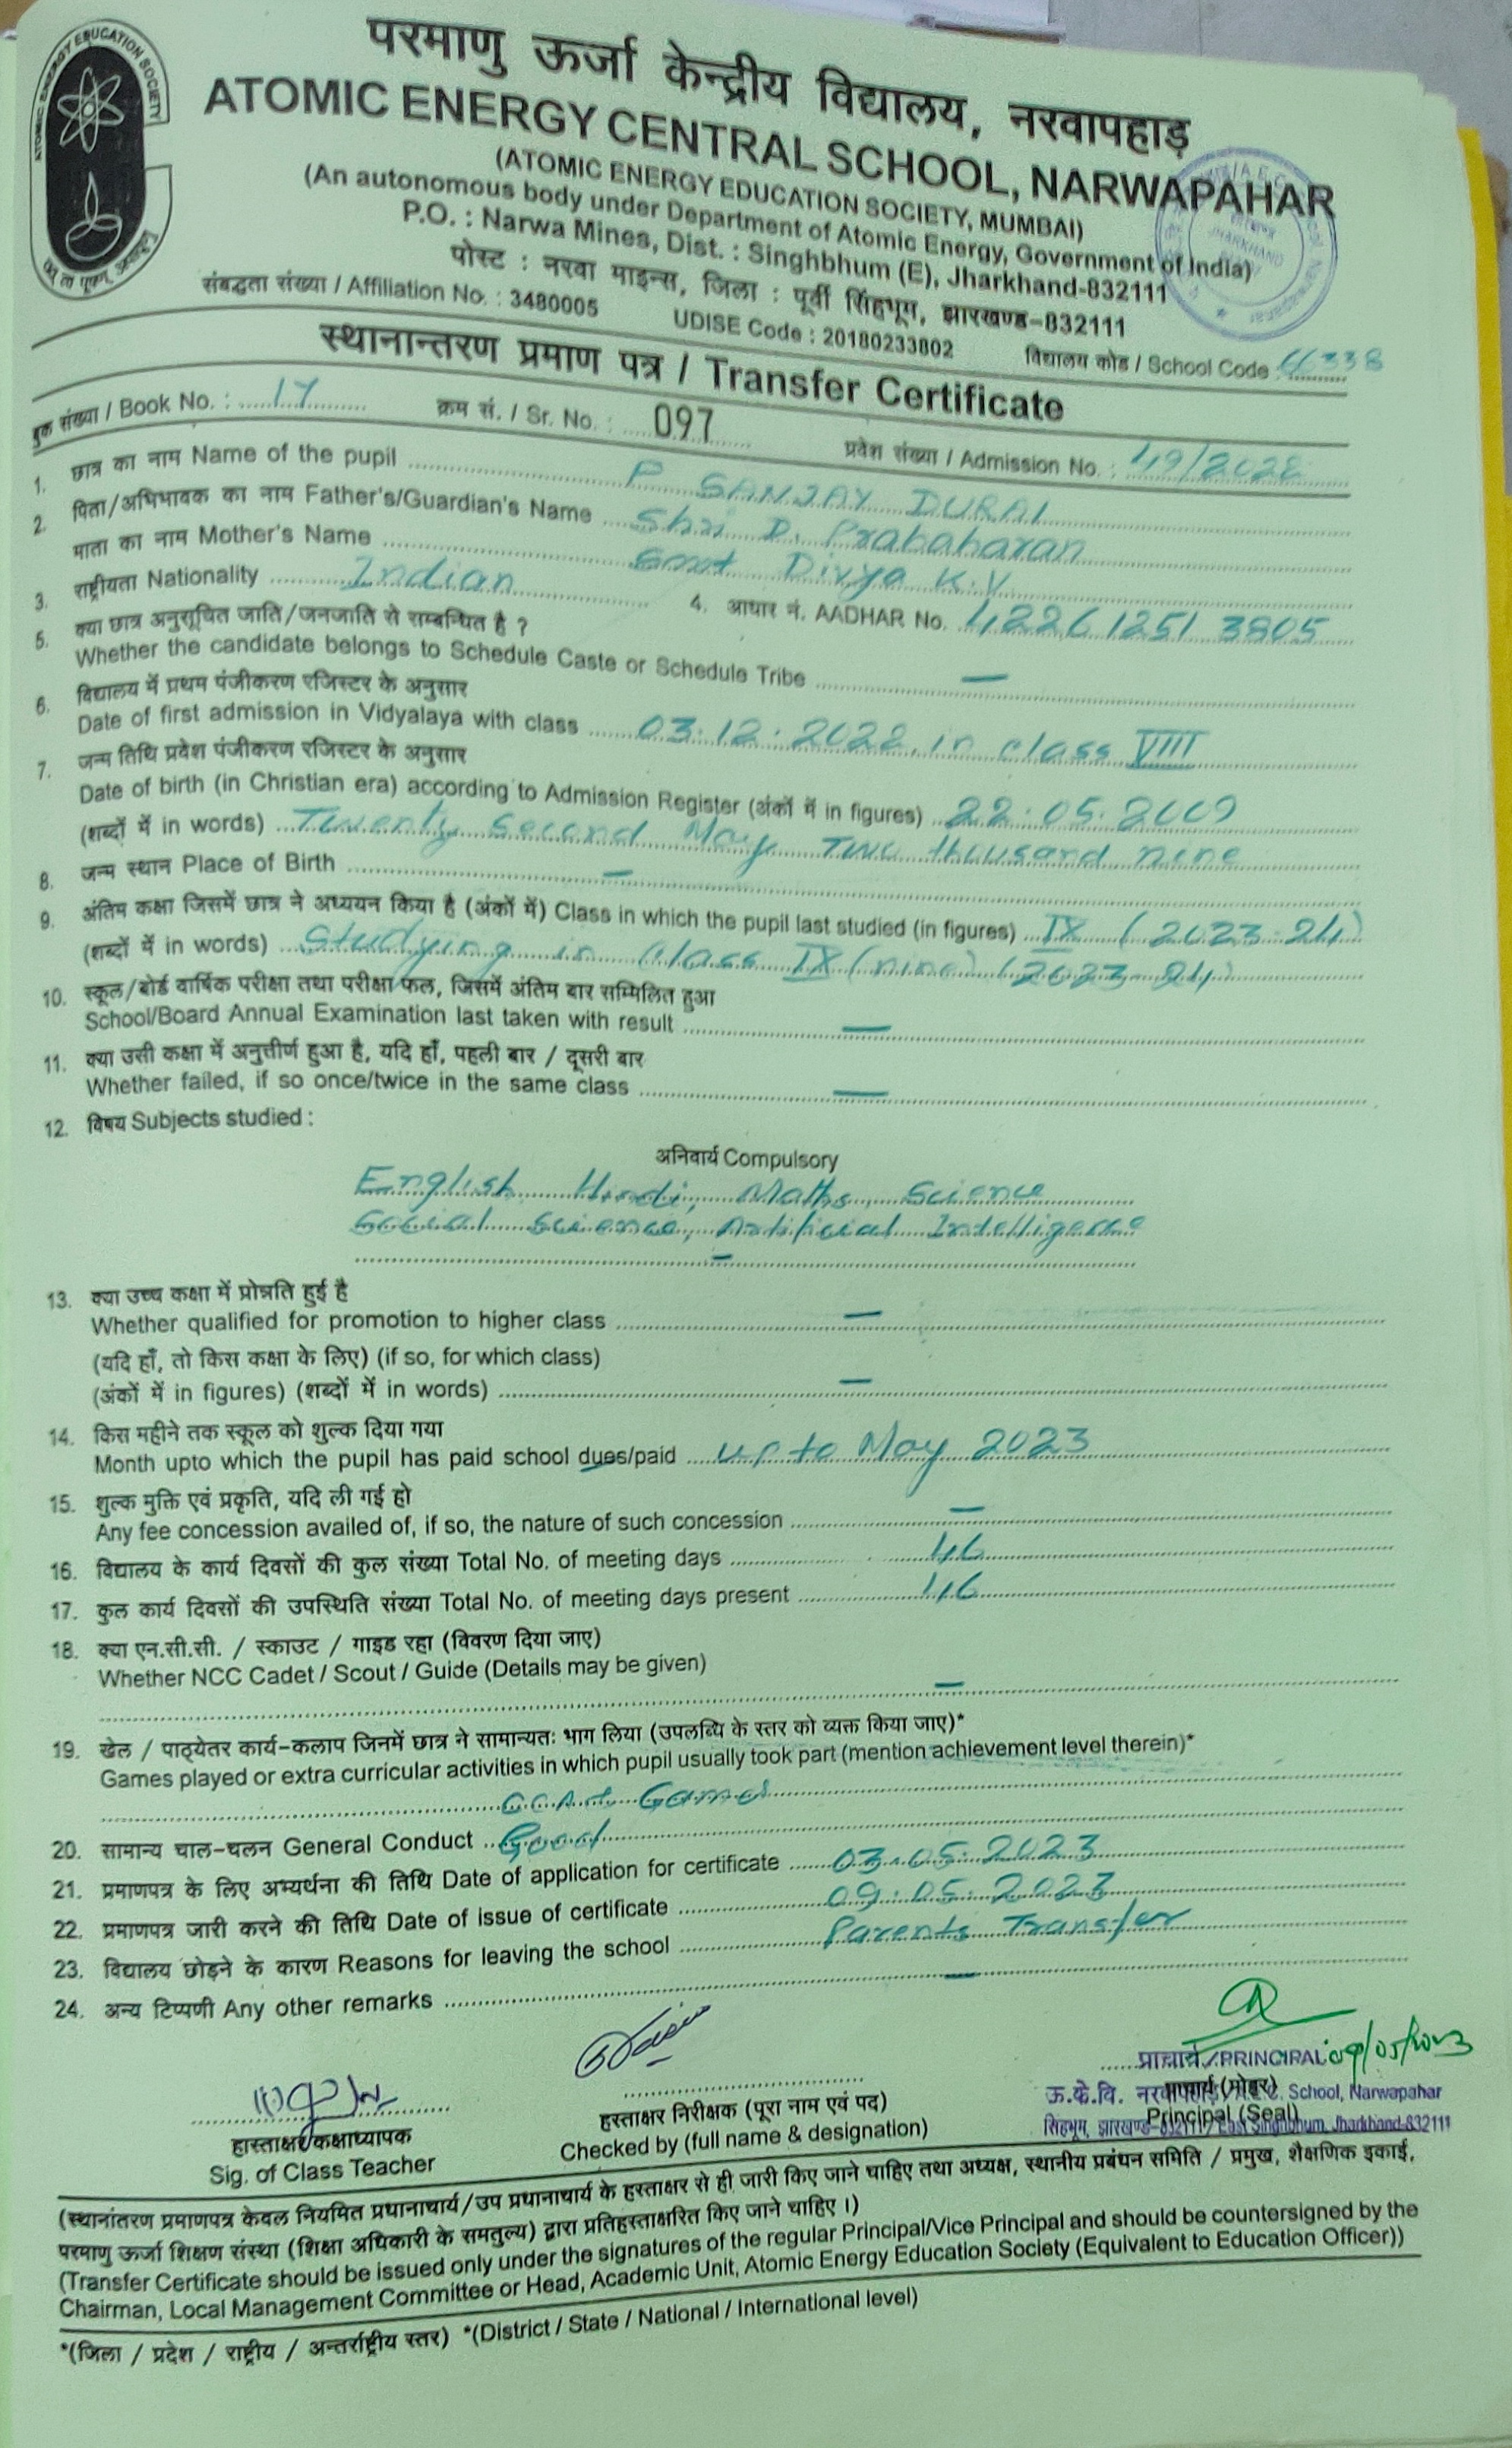 ATOMIC ENERGY EDUCATION SOCIETY
परमाणु ऊर्जा केन्द्रीय विद्यालय, नरवापहाड़
ATOMIC ENERGY CENTRAL SCHOOL, NARWAPAHAR
(ATOMIC ENERGY EDUCATION SOCIETY, MUMBAI)
(An autonomous body under Department of Atomic Energy, Government of India)
P.O. : Narwa Mines, Dist. : Singhbhum (E), Jharkhand-832111
पोस्ट : नरवा माइन्स, जिला : पूर्वी सिंहभूम, झारखण्ड-832111
संबद्धता संख्या / Affiliation No. : 3480005 UDISE Code : 20180233802 विद्यालय कोड / School Code : 66338
स्थानान्तरण प्रमाण पत्र / Transfer Certificate
बुक संख्या / Book No. : 17 क्रम सं. / Sr. No. : 097 प्रवेश संख्या / Admission No. : 49/2022
1. छात्र का नाम Name of the pupil P SANJAY DURAI
2. पिता/अभिभावक का नाम Father's/Guardian's Name Shri D. Prabaharan
माता का नाम Mother's Name Smt Divya K.V.
3. राष्ट्रीयता Nationality Indian 4. आधार नं. AADHAR No. 4226 1251 3805
5. क्या छात्र अनुसूचित जाति/जनजाति से सम्बन्धित है ?
Whether the candidate belongs to Schedule Caste or Schedule Tribe —
6. विद्यालय में प्रथम पंजीकरण रजिस्टर के अनुसार
Date of first admission in Vidyalaya with class 03.12.2022 in class VIII
7. जन्म तिथि प्रवेश पंजीकरण रजिस्टर के अनुसार
Date of birth (in Christian era) according to Admission Register (अंकों में in figures) 22.05.2009
(शब्दों में in words) Twenty Second May Two thousand nine
8. जन्म स्थान Place of Birth —
9. अंतिम कक्षा जिसमें छात्र ने अध्ययन किया है (अंकों में) Class in which the pupil last studied (in figures) IX (2023-24)
(शब्दों में in words) Studying in Class IX (nine) (2023-24)
10. स्कूल/बोर्ड वार्षिक परीक्षा तथा परीक्षा फल, जिसमें अंतिम बार सम्मिलित हुआ
School/Board Annual Examination last taken with result —
11. क्या उसी कक्षा में अनुत्तीर्ण हुआ है, यदि हाँ, पहली बार / दूसरी बार
Whether failed, if so once/twice in the same class —
12. विषय Subjects studied :
अनिवार्य Compulsory
English Hindi, Maths, Science
Social Science, Artificial Intelligence
—
13. क्या उच्च कक्षा में प्रोन्नति हुई है
Whether qualified for promotion to higher class —
(यदि हाँ, तो किस कक्षा के लिए) (if so, for which class)
(अंकों में in figures) (शब्दों में in words) —
14. किस महीने तक स्कूल को शुल्क दिया गया
Month upto which the pupil has paid school dues/paid up to May 2023
15. शुल्क मुक्ति एवं प्रकृति, यदि ली गई हो
Any fee concession availed of, if so, the nature of such concession —
16. विद्यालय के कार्य दिवसों की कुल संख्या Total No. of meeting days 46
17. कुल कार्य दिवसों की उपस्थिति संख्या Total No. of meeting days present 46
18. क्या एन.सी.सी. / स्काउट / गाइड रहा (विवरण दिया जाए)
Whether NCC Cadet / Scout / Guide (Details may be given)
—
19. खेल / पाठ्येतर कार्य-कलाप जिनमें छात्र ने सामान्यतः भाग लिया (उपलब्धि के स्तर को व्यक्त किया जाए)*
Games played or extra curricular activities in which pupil usually took part (mention achievement level therein)*
CCA & Games
20. सामान्य चाल-चलन General Conduct Good
21. प्रमाणपत्र के लिए अभ्यर्थना की तिथि Date of application for certificate 03.05.2023
22. प्रमाणपत्र जारी करने की तिथि Date of issue of certificate 09.05.2023
23. विद्यालय छोड़ने के कारण Reasons for leaving the school Parents Transfer
24. अन्य टिप्पणी Any other remarks —
प्राचार्य/PRINCIPAL 09/05/2023
ऊ.के.वि. नरवापहाड़ School, Narwapahar
प्राचार्य (मोहर)
सिंहभूम, झारखण्ड-832111/East Singhbhum, Jharkhand-832111
Principal (Seal)
हास्ताक्षर कक्षाध्यापक
Sig. of Class Teacher
हस्ताक्षर निरीक्षक (पूरा नाम एवं पद)
Checked by (full name & designation)
(स्थानांतरण प्रमाणपत्र केवल नियमित प्रधानाचार्य/उप प्रधानाचार्य के हस्ताक्षर से ही जारी किए जाने चाहिए तथा अध्यक्ष, स्थानीय प्रबंधन समिति / प्रमुख, शैक्षणिक इकाई,
परमाणु ऊर्जा शिक्षण संस्था (शिक्षा अधिकारी के समतुल्य) द्वारा प्रतिहस्ताक्षरित किए जाने चाहिए ।)
(Transfer Certificate should be issued only under the signatures of the regular Principal/Vice Principal and should be countersigned by the
Chairman, Local Management Committee or Head, Academic Unit, Atomic Energy Education Society (Equivalent to Education Officer))
*(जिला / प्रदेश / राष्ट्रीय / अन्तर्राष्ट्रीय स्तर) *(District / State / National / International level)